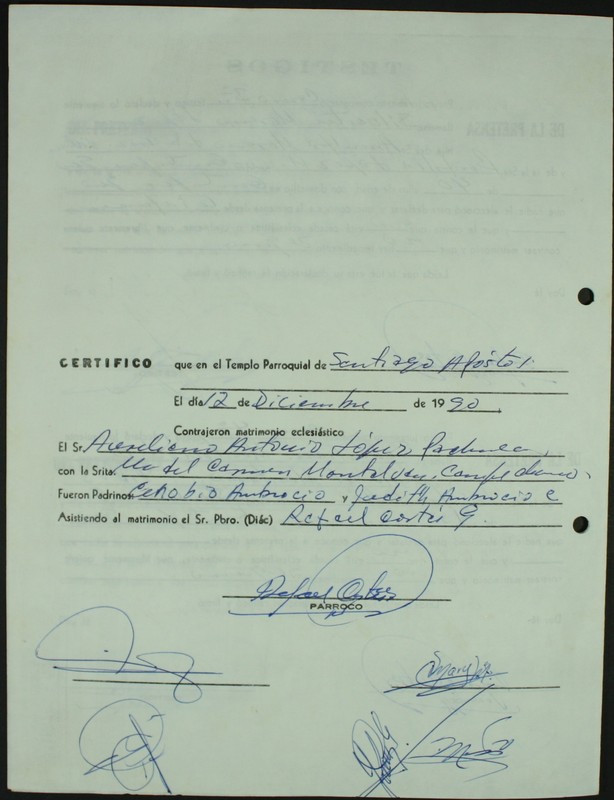 CERTIFICO que en el Templo Parroquial de Santiago Apóstol
El día 12 de Diciembre de 1990.
Contrajeron matrimonio eclesiástico
El Sr. Aureliano Antonio López Pacheco,
con la Srita. Ma del Carmen Montalvan
Fueron Padrinos Ambrocio y Judith Ambrocio C
Asistiendo al matrimonio el Sr. Pbro. (Diác) Rafael Cortés G.
Rafael Cortés
PARROCO